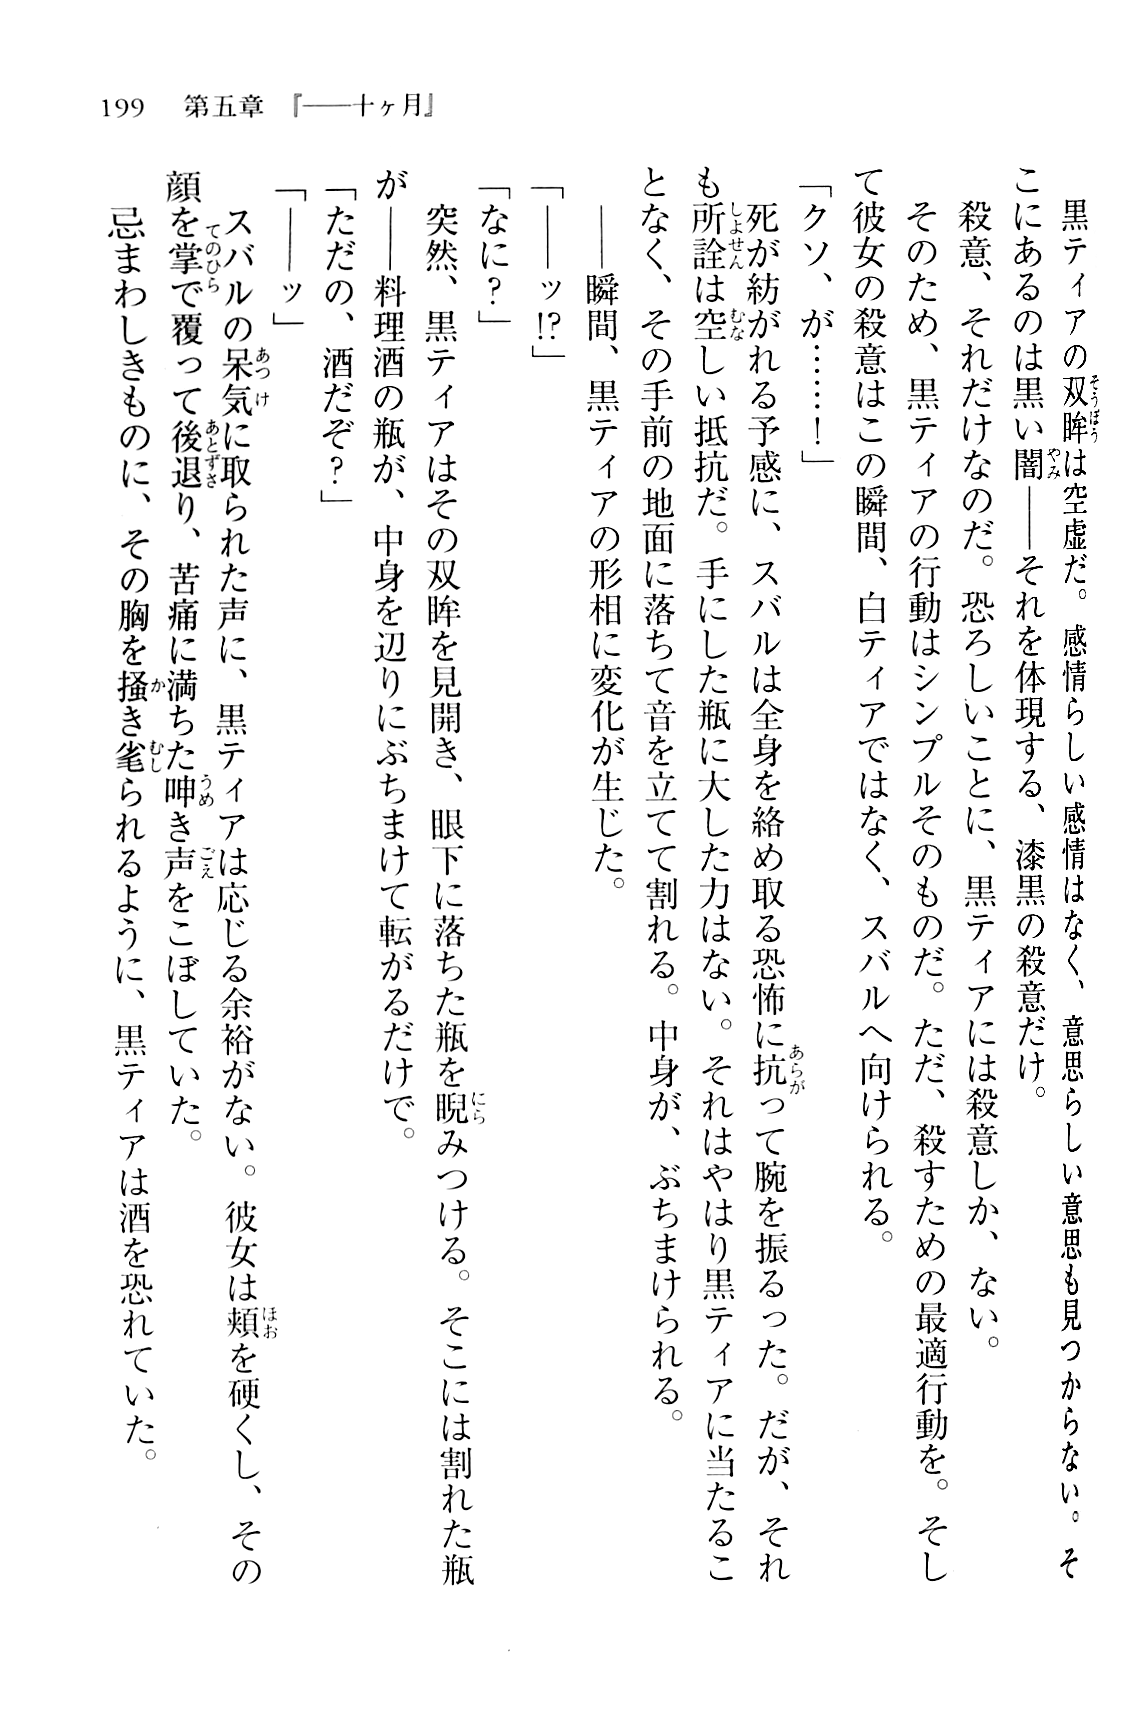 199　第五章　『――十ヶ月』
　黒ティアの双眸は空虚だ。感情らしい感情はなく、意思らしい意思も見つからない。そ
こにあるのは黒い闇――それを体現する、漆黒の殺意だけ。
　殺意、それだけなのだ。恐ろしいことに、黒ティアには殺意しか、ない。
　そのため、黒ティアの行動はシンプルそのものだ。ただ、殺すための最適行動を。そし
て彼女の殺意はこの瞬間、白ティアではなく、スバルへ向けられる。
「クソ、が……！」
　死が紡がれる予感に、スバルは全身を絡め取る恐怖に抗って腕を振るった。だが、それ
も所詮は空しい抵抗だ。手にした瓶に大した力はない。それはやはり黒ティアに当たるこ
となく、その手前の地面に落ちて音を立てて割れる。中身が、ぶちまけられる。
　――瞬間、黒ティアの形相に変化が生じた。
「――ッ!?」
「なに？」
　突然、黒ティアはその双眸を見開き、眼下に落ちた瓶を睨みつける。そこには割れた瓶
が――料理酒の瓶が、中身を辺りにぶちまけて転がるだけで。
「ただの、酒だぞ？」
「――ッ」
　スバルの呆気に取られた声に、黒ティアは応じる余裕がない。彼女は頬を硬くし、その
顔を掌で覆って後退り、苦痛に満ちた呻き声をこぼしていた。
　忌まわしきものに、その胸を掻き毟られるように、黒ティアは酒を恐れていた。